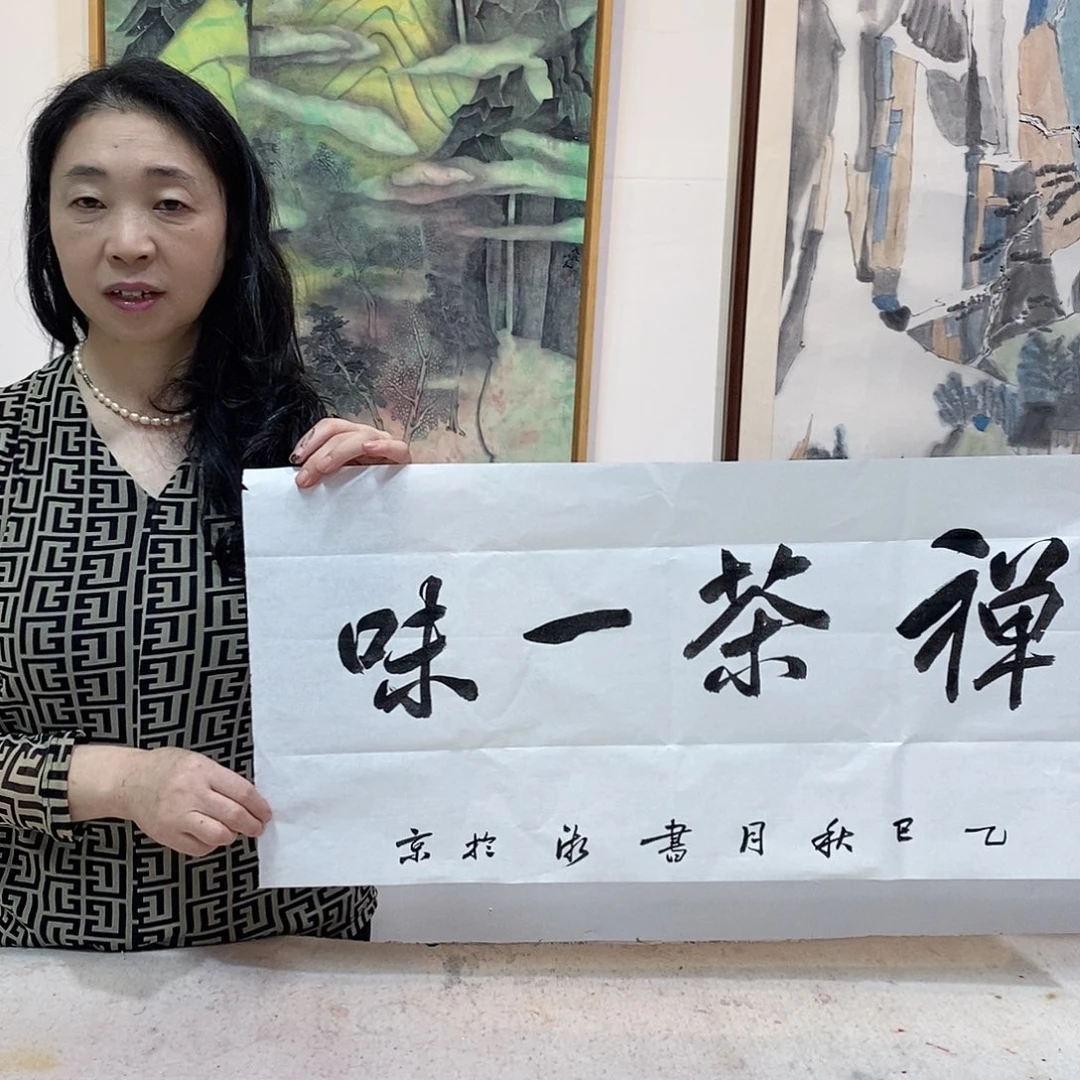 禅茶一味
乙巳秋月書於京